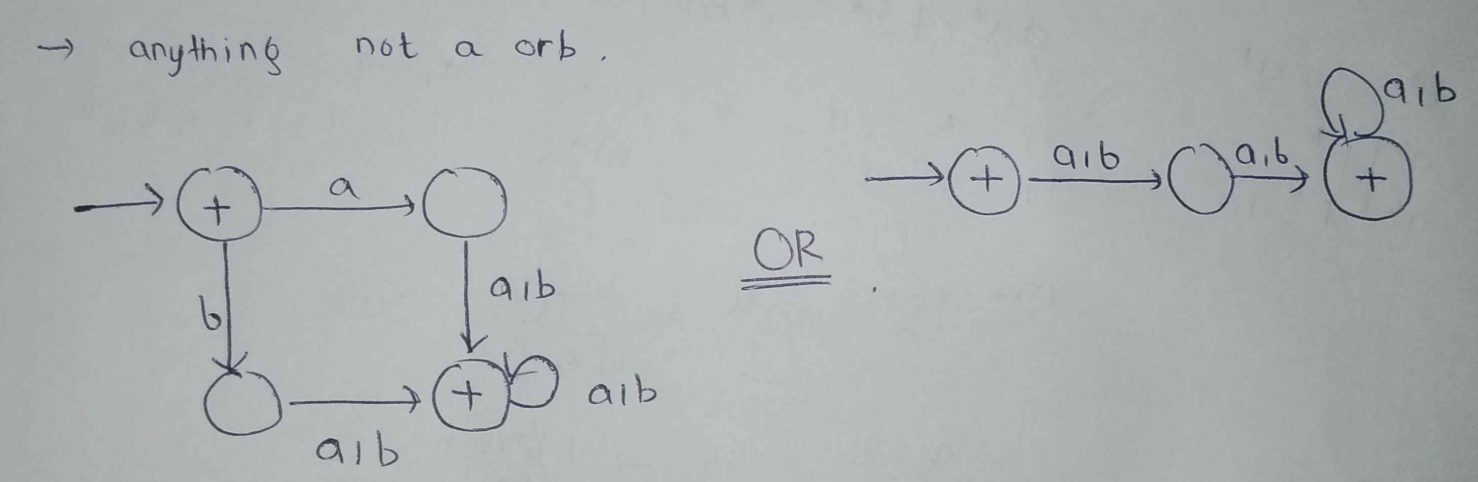 → anything not a orb.
a,b
+ a,b a,b +
+ a
OR
a,b
b
+ a,b
a,b